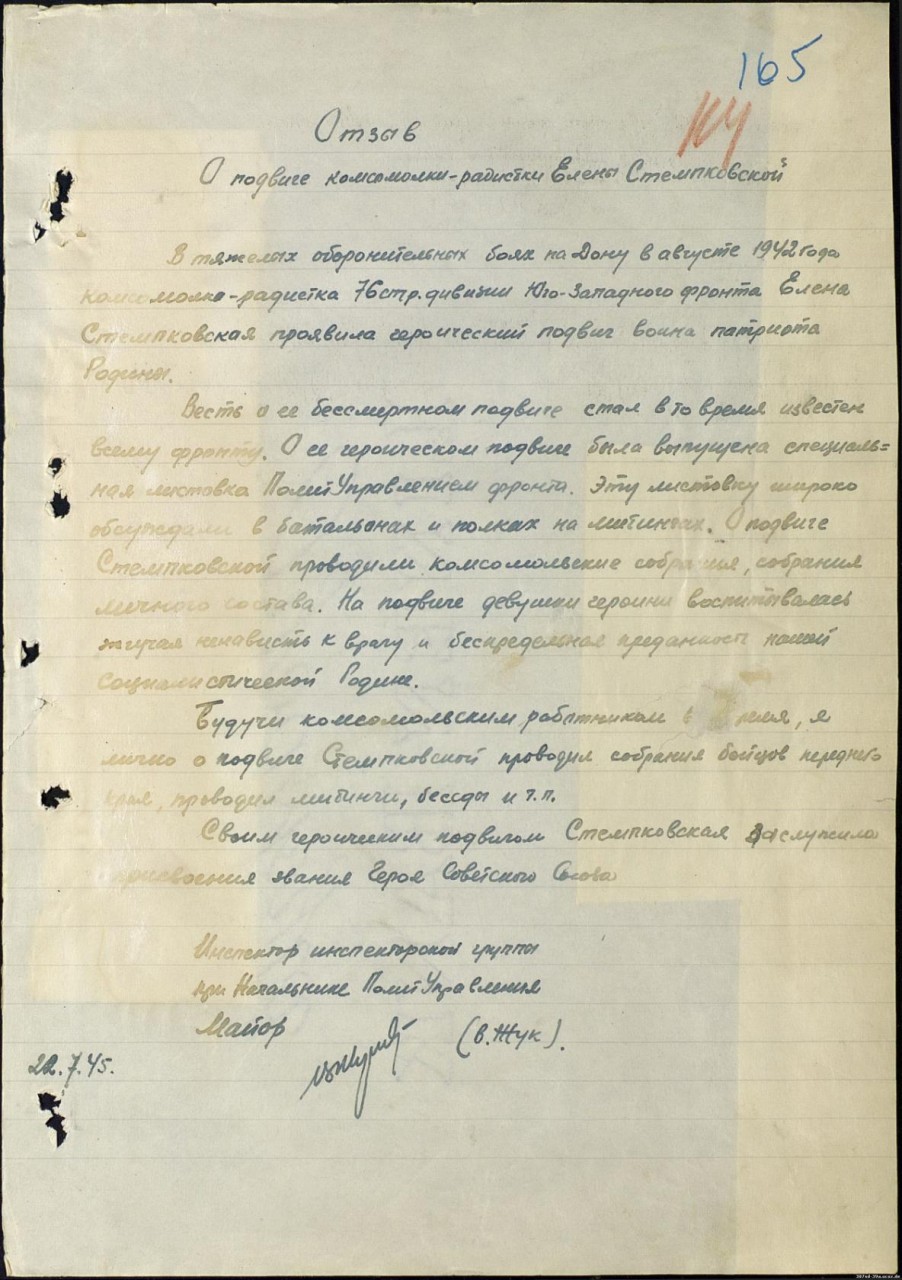 165
Отзыв
О подвиге комсомолки-радистки Елены Стемпковской"
В тяжелых оборонительных боях на Дону в августе 1942 года
комсомолка-радистка 76 стр. дивизии Юго-Западного фронта Елена
Стемпковская проявила героический подвиг воина патриота
Родины.
Весть о ее бессмертном подвиге стал в то время известен
всему фронту. О ее героическом подвиге была выпущена специаль=
ная листовка ПолитУправлением фронта. Эту листовку широко
обсуждали в батальонах и полках на митингах. О подвиге
Стемпковской проводили комсомольские собрания, собрания
личного состава. На подвиге девушки героини воспитывалась
жгучая ненависть к врагу и беспредельная преданность нашей
социалистической Родине.
Будучи комсомольским работником в, я
лично о подвиге Стемпковской проводил собрания бойцов переднего
края, проводил митинги, беседы и т.п.
Своим героическим подвигом Стемпковская заслужила
присвоения звания Героя Советского Союза
Инспектор инспекторской группы
при Начальнике ПолитУправления
Майор (В. Жук).
22.7.45.